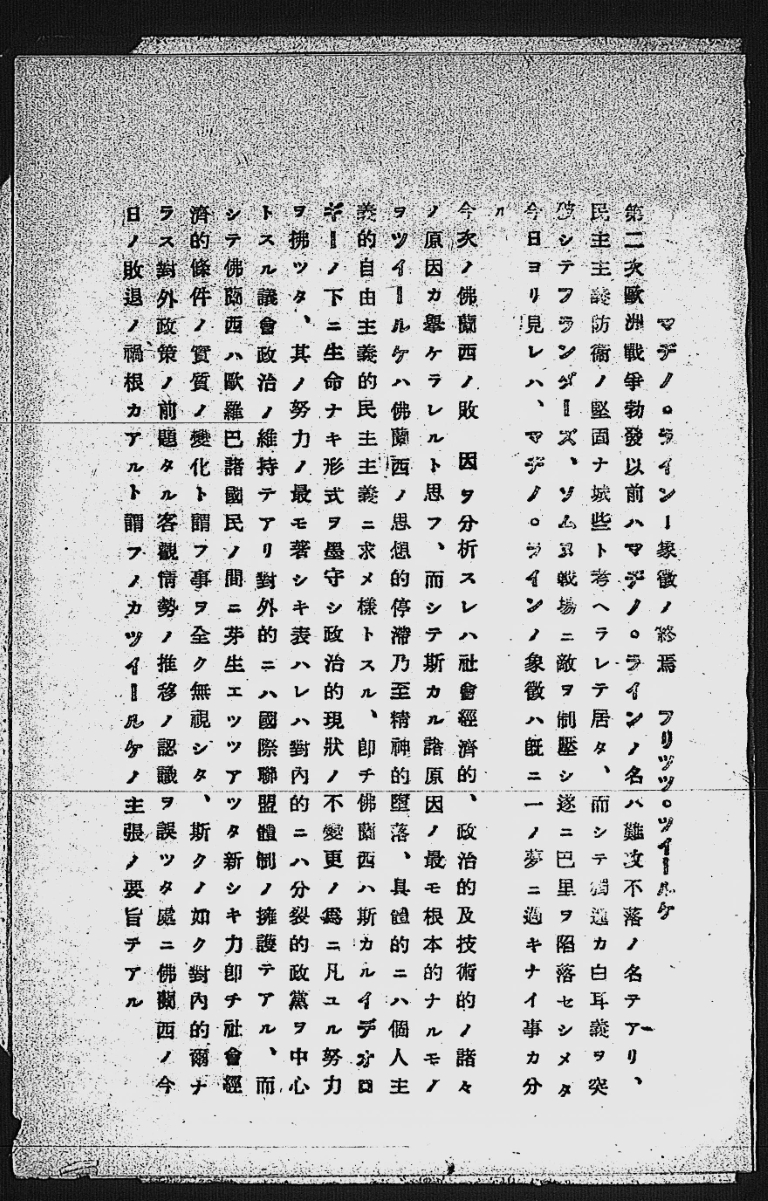 マヂノ。ラインー象徴ノ終焉　フリッツ。ツイールケ
第二次歐洲戰爭勃發以前ハマヂノ。ラインノ名ハ難攻不落ノ名テアリ、
民主主義防衞ノ堅固ナ城些ト考ヘラレテ居タ、而シテ獨逸カ白耳義ヲ突
破シテフランダーズ、ソムヌ戰場ニ敵ヲ制壓シ遂ニ巴里ヲ陷落セシメタ
今日ヨリ見レハ、マヂノ。ラインノ象徴ハ既ニ一ノ夢ニ過キナイ事カ分
ル
今次ノ佛蘭西ノ敗　因ヲ分析スレハ社會經濟的、政治的及技術的ノ諸々
ノ原因カ擧ケラレルト思フ、而シテ斯カル諸原因ノ最モ根本的ナルモノ
ヲツイールケハ佛蘭西ノ思想的停滯乃至精神的墮落、具體的ニハ個人主
義的自由主義的民主主義ニ求メ樣トスル、卽チ佛蘭西ハ斯カルイデオロ
ギーノ下ニ生命ナキ形式ヲ墨守シ政治的現狀ノ不變更ノ爲ニ凡ユル努力
ヲ拂ツタ、其ノ努力ノ最モ著シキ表ハレハ對內的ニハ分裂的政黨ヲ中心
トスル議會政治ノ維持テアリ對外的ニハ國際聯盟體制ノ擁護テアル、而
シテ佛蘭西ハ歐羅巴諸國民ノ間ニ芽生エツツアツタ新シキ力卽チ社會經
濟的條件ノ實質ノ變化ト謂フ事ヲ全ク無視シタ、斯クノ如ク對內的爾ナ
ラス對外政策ノ前題タル客觀情勢ノ推移ノ認識ヲ誤ツタ處ニ佛蘭西ノ今
日ノ敗退ノ禍根カアルト謂フノカツイールケノ主張ノ要旨テアル